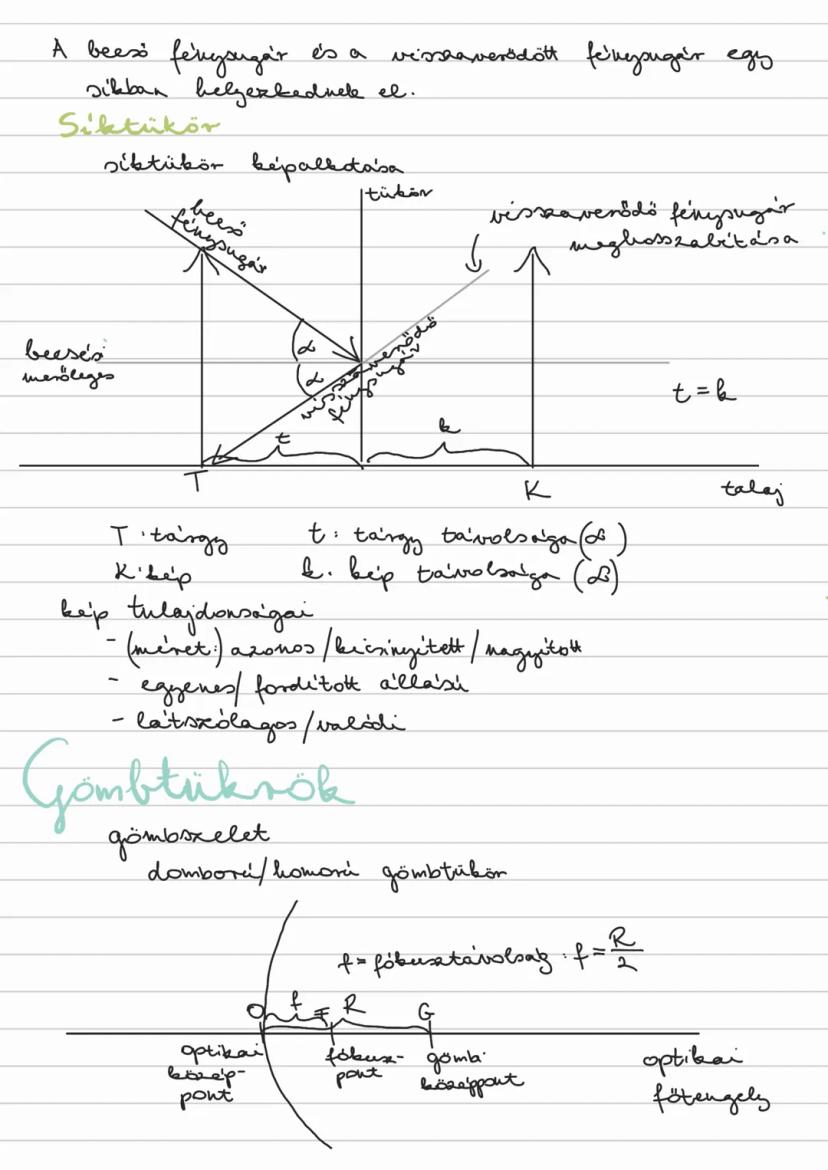 A beeső fénysugár és a visszaverődött fénysugár egy
síkban helyezkednek el.
Síktükör
síktükör képalkotása
tükör
beeső
fénysugár
visszaverődő fénysugár
meghosszabítása
beesési
merőleges
α
α
visszaverődő
fénysugár
t = k
t
k
T
K
talaj
T: tárgy t: tárgy távolsága
K: kép k: kép távolsága
kép tulajdonságai
- (méret:) azonos/kicsinyített/nagyított
- egyenes/fordított állású
- látszólagos/valódi
Gömbtükrök
gömbszelet
domború/homorú gömbtükör
f = fókusztávolság: f = R/2
O f F R G
optikai
közép-
pont
fókusz-
pont
gömb-
középpont
optikai
főtengely